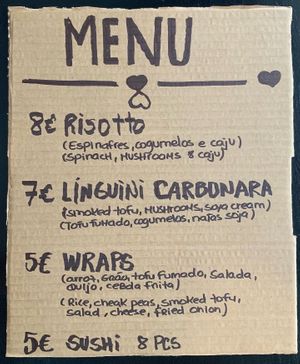 MENU
8€ RISOTTO
(Espinafres, cogumelos e caju)
(Spinach, MUSHROOMS & caju)
7€ LINGUINI CARBONARA
(smoked tofu, MUSHROOMS, soya cream)
(Tofu fumado, cogumelos, natas soja)
5€ WRAPS
(arroz, Grão, tofu fumado, Salada,
queijo, cebola frita)
(Rice, cheak peas, smoked tofu,
salad, cheese, fried onion)
5€ SUSHI 8 PCS